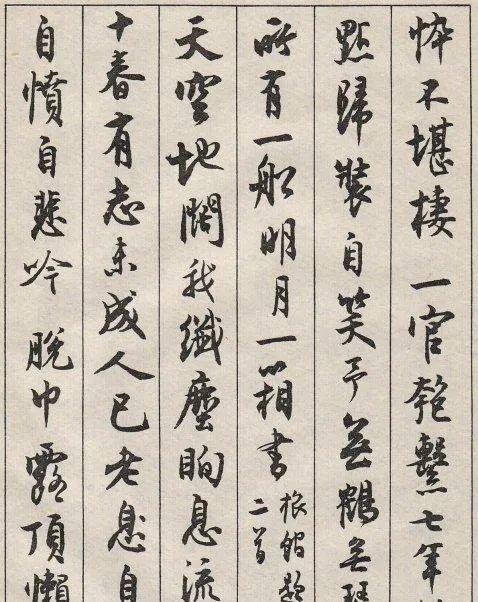 悴不堪棲一官匏繫七年
點歸裝自笑予無鶴無
所有一船明月一箱書
旅館題
二首
天空地闊我纖塵眴息流
十春有志未成人已老息自
自憤自悲吟脫巾露頂懶